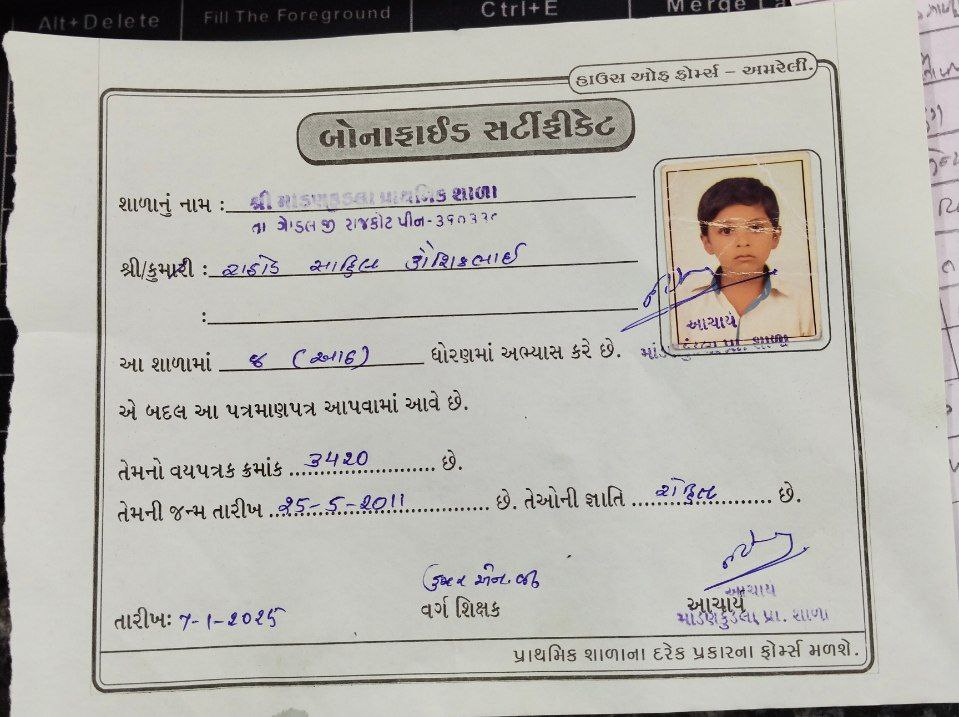 Alt+Delete
Fill The Foreground
Ctrl+E
Merge La
હાઉસ ઓફ ફોર્મ્સ – અમરેલી.
બોનાફાઈડ સર્ટીફીકેટ
શાળાનું નામ : શ્રી માંડણકુંડલા પ્રાથમિક શાળા
તા ગોંડલ જી રાજકોટ પીન-૩૬૦૩૨૦
શ્રી/કુમારી : રાઠોડ સાહિલ કૌશિકભાઈ
:
આ શાળામાં ૪ (આઠ) ધોરણમાં અભ્યાસ કરે છે.
આચાર્ય
માંડણકુંડલા પ્રા. શાળા
એ બદલ આ પત્રમાણપત્ર આપવામાં આવે છે.
તેમનો વયપત્રક ક્રમાંક 3420 છે.
તેમની જન્મ તારીખ 25-5-2011 છે. તેઓની જ્ઞાતિ છે.
તારીખ: 7-1-2025
વર્ગ શિક્ષક
આચાર્ય
આચાર્ય
માંડણકુંડલા પ્રા. શાળા
પ્રાથમિક શાળાના દરેક પ્રકારના ફોર્મ્સ મળશે.